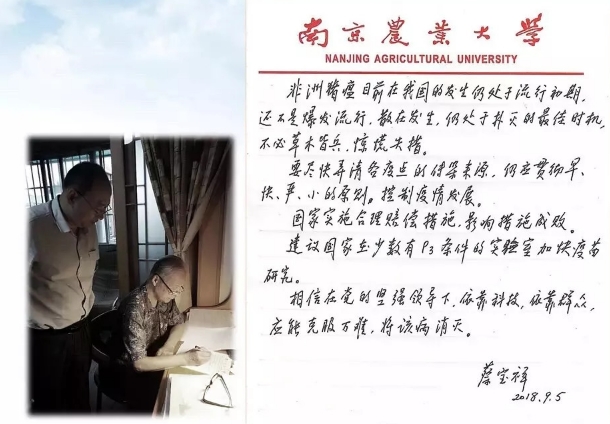 南京農業大學
NANJING AGRICULTURAL UNIVERSITY
非洲猪瘟目前在我国的发生仍处于流行初期，
还不是爆发流行，散在发生，仍处于扑灭的最佳时机，
不必草木皆兵，惊慌失措。
要尽快弄清各疫点的传染来源，仍应贯彻早、
快、严、小的原则。控制疫情发展。
国家实施合理赔偿措施，影响措施成败。
建议国家至少数有P3条件的实验室加快疫苗
研究。
相信在党的坚强领导下，依靠科技，依靠群众，
应能克服万难，将该病消灭。
蔡宝祥
2018.9.5